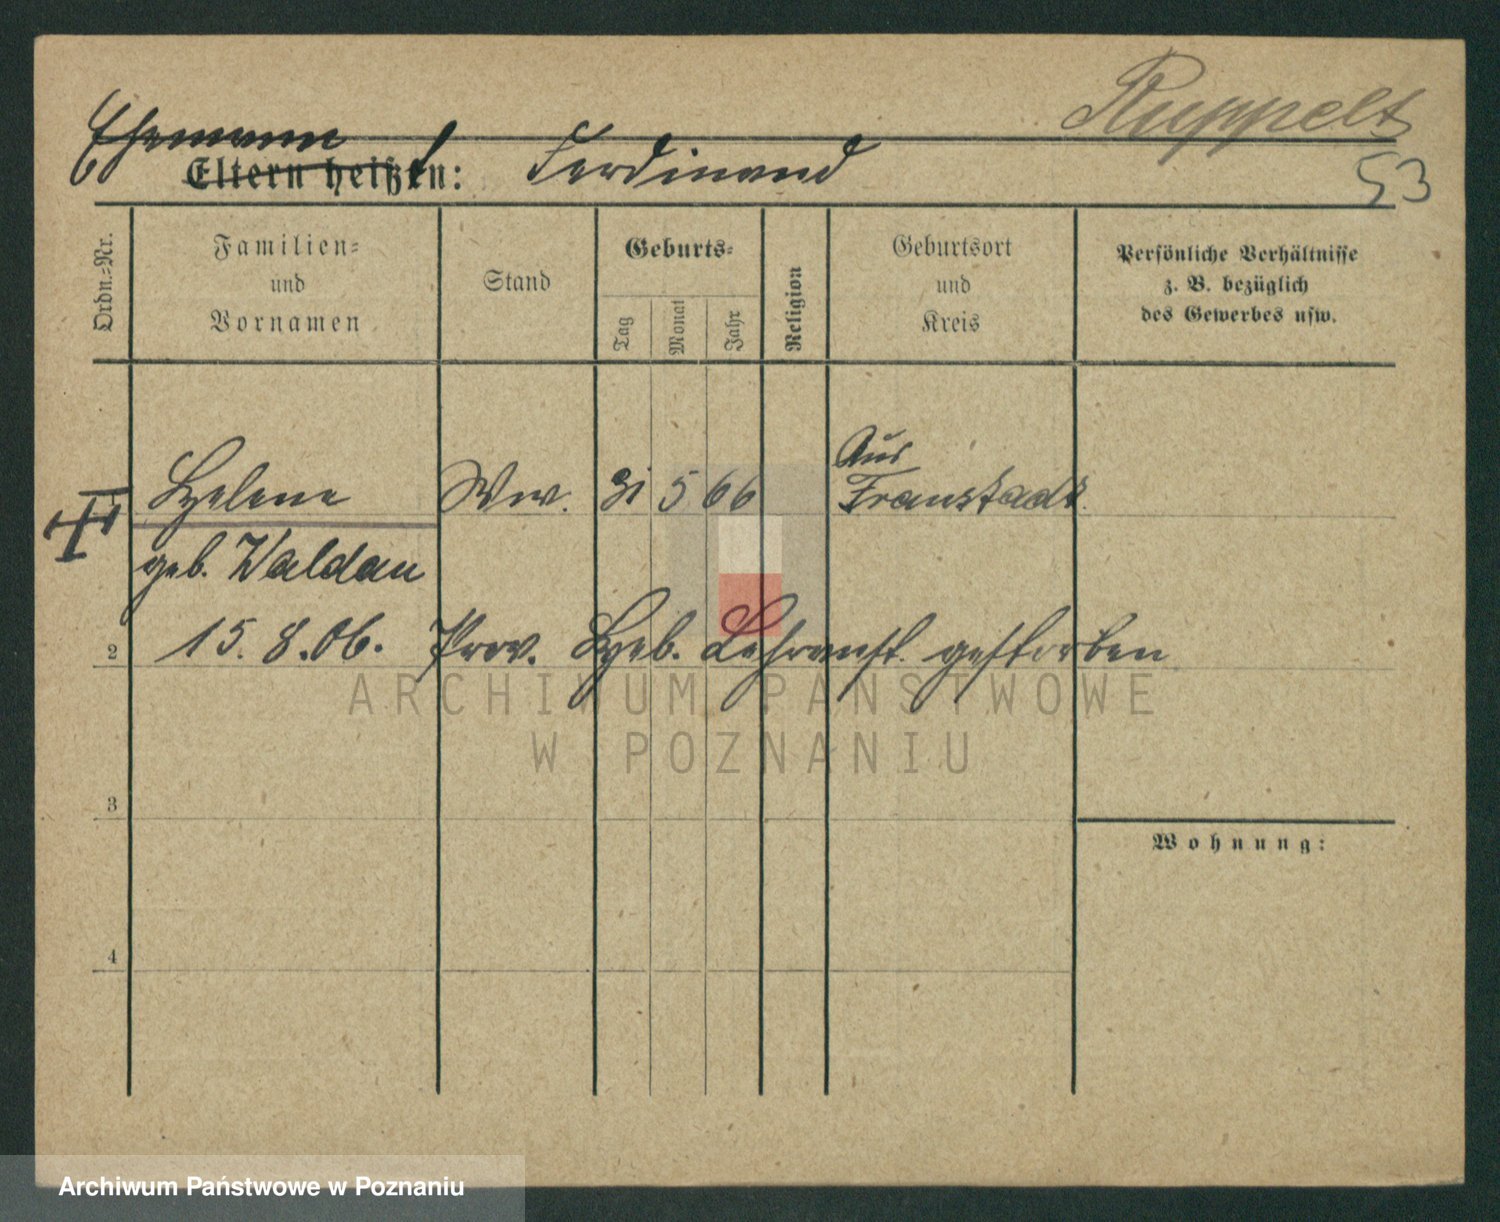 Ruppelt
53
Ehemann
Eltern heißt: Ferdinand
Ordn.-Nr.
Familien-
und
Vornamen
Stand
Geburts-
Tag
Monat
Jahr
Religion
Geburtsort
und
Kreis
Persönliche Verhältnisse
z. B. bezüglich
des Gewerbes usw.
Helene Ww. 31 5 66 Aus
Fraustadt.
geb. Waldau
15.8.06. Prov. Heb. Lehranst. gestorben
2
3
4
Wohnung:
ARCHIWUM PAŃSTWOWE
W POZNANIU
Archiwum Państwowe w Poznaniu